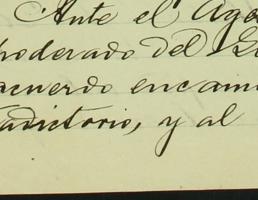 Ante el Age
poderado del G
acuerdo encami
adictorio, y al